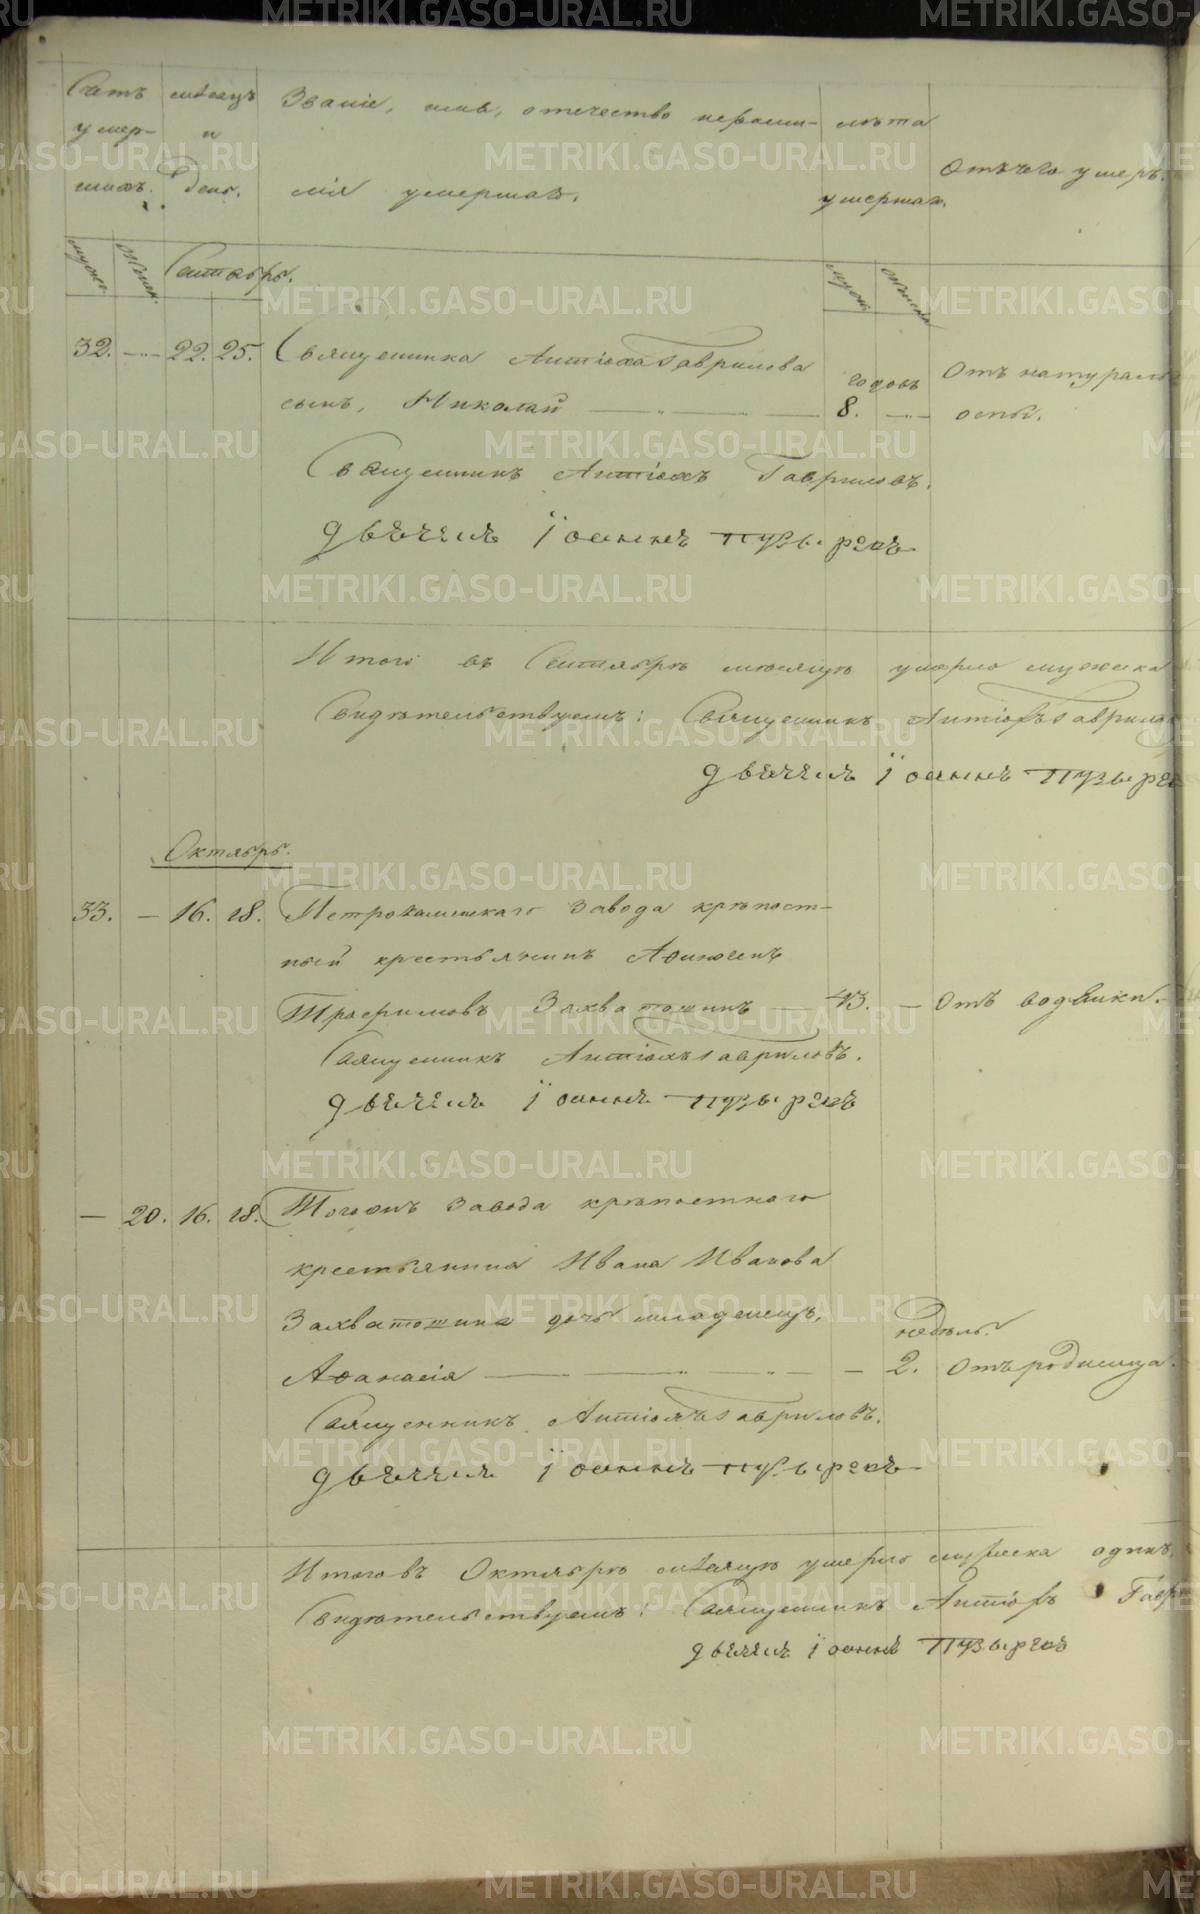 Счетъ мѣсяцъ Званіе, имя, отечество и фами- лѣта
умер- и Отъ чего умеръ.
шихъ. день. лія умершихъ. умершихъ.
мужес. женск. Сентябрь. мужес. женска
32. — 22. 25. Священника Антіоха Гаврилова годовъ Отъ натураль
сынъ, Николай — 8. — оспы.
Священникъ Антіохъ Гавриловъ.
дьячекъ Іоаннъ Пузыревъ
Итого въ Сентябрѣ мѣсяцѣ умерло мужеска
Свидѣтельствуемъ: Священникъ Антіохъ Гаврило
дьячекъ Іоаннъ Пузырев
Октябрь.
33. — 16. 18. Петрокаменскаго завода крѣпост-
ный крестьянинъ Афиногенъ
Трофимовъ Захватошинъ — 43. — Отъ водянки.
Священникъ Антіохъ Гавриловъ.
дьячекъ Іоаннъ Пузыревъ
— 20. 16. 18. Тогожъ завода крѣпостнаго
крестьянина Ивана Иванова
Захватошина дочь младенецъ, недѣль.
Афанасія — — 2. Отъ родимца.
Священникъ Антіохъ Гавриловъ.
дьячекъ Іоаннъ Пузыревъ
Итого въ Октябрѣ мѣсяцѣ умерло мужеска одинъ,
Свидѣтельствуемъ: Священникъ Антіохъ Гавр
дьячекъ Іоаннъ Пузыревъ
METRIKI.GASO-URAL.RU